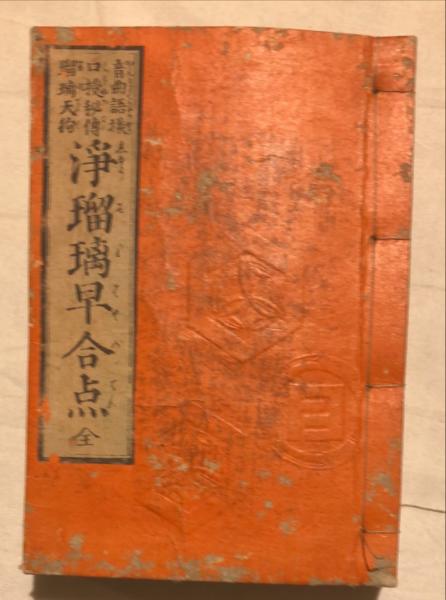 音曲語様
口授秘傳
瑠璃天狗
浄瑠璃早合点
全